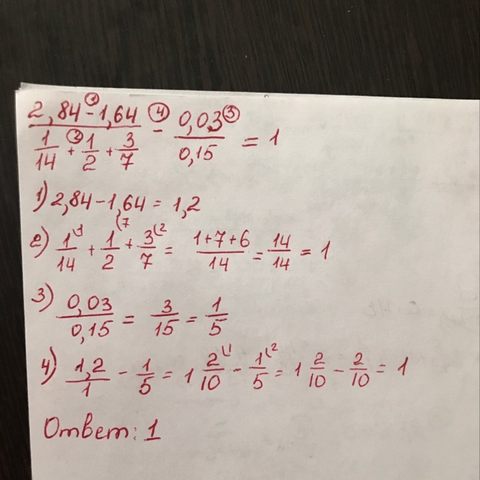 (2,84 - 1,64)/(1/14 + 1/2 + 3/7) - 0,03/0,15 = 1
1) 2,84 - 1,64 = 1,2
2) 1/14 + 1/2 + 3/7 = (1+7+6)/14 = 14/14 = 1
3) 0,03/0,15 = 3/15 = 1/5
4) 1,2/1 - 1/5 = 1 2/10 - 1/5 = 1 2/10 - 2/10 = 1
Ответ: 1